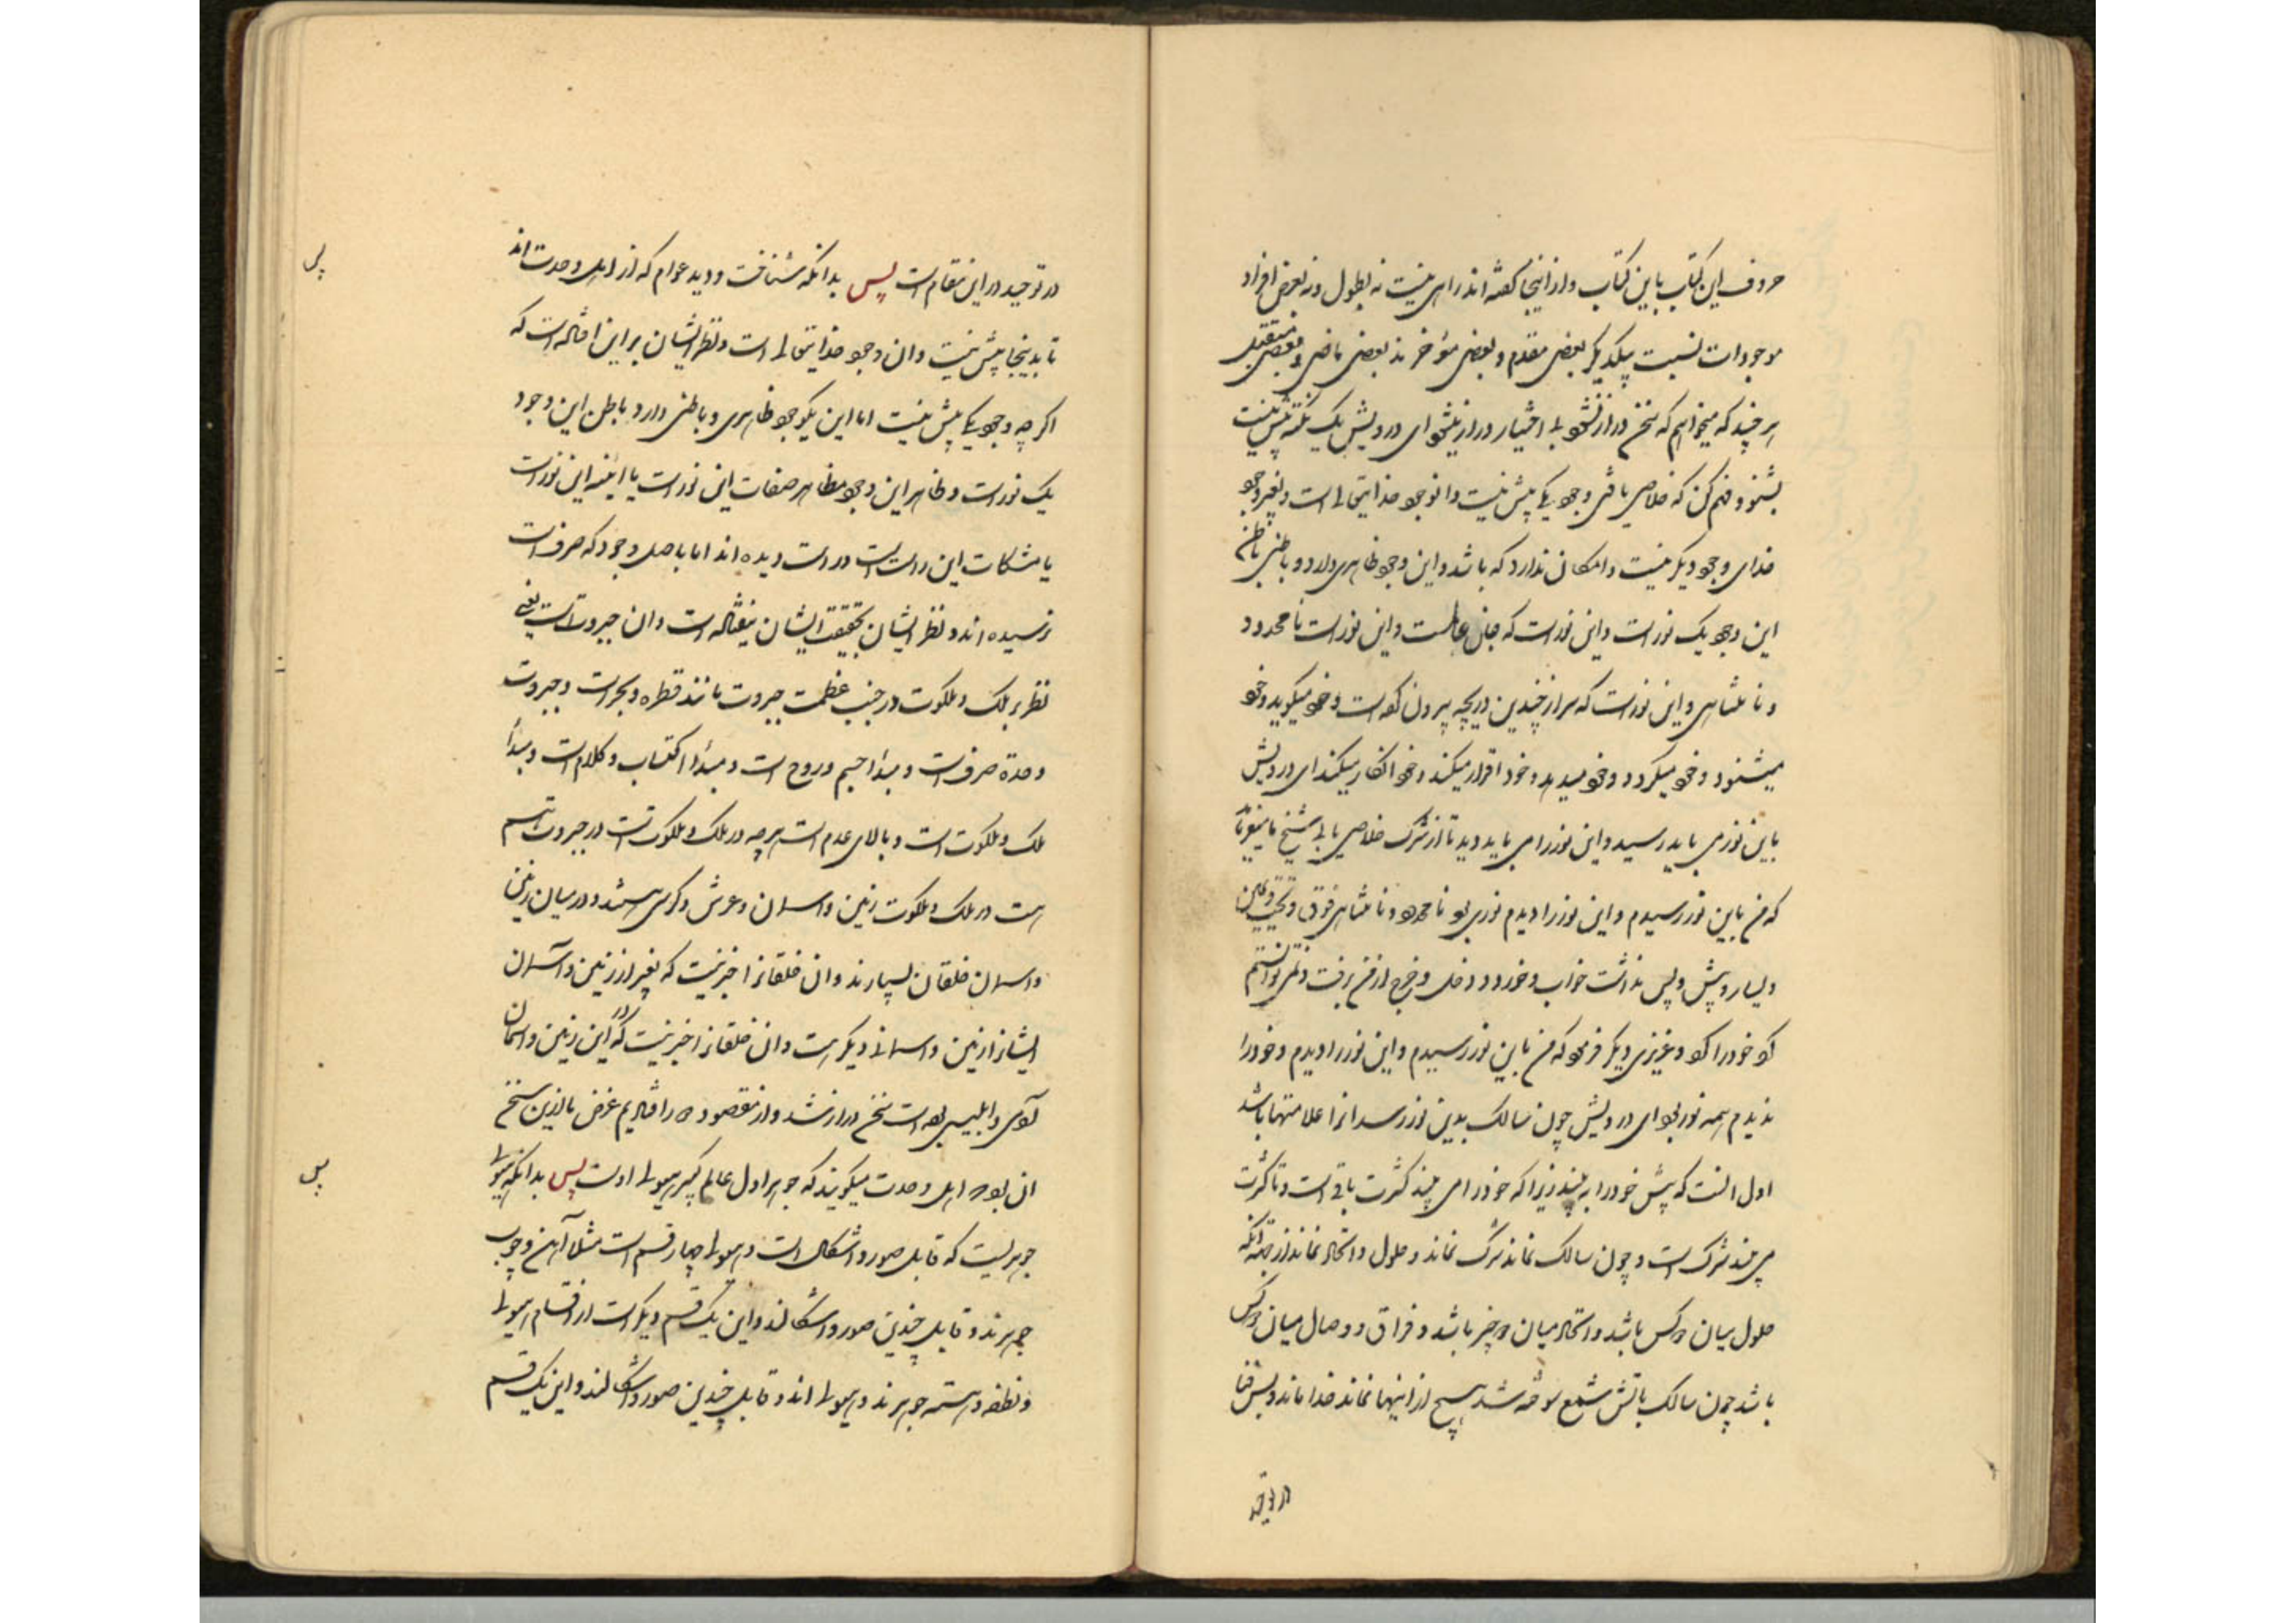 حروف این کتاب باین کتاب و از اینجا گفته‌اند راهی نیست نه بطول و نه بعرض افراد
موجودات نسبت بیکدیگر بعضی مقدم و بعضی مؤخرند بعضی ماضی و بعضی مستقبل
هرچند که میخواهم که سخن دراز نشود بی اختیار دراز میشود ای درویش یک نکته پیش نیست
بشنو و فهم کن که خلاصی یافتی وجود یکی پیش نیست و آن وجود خدایتعالی است و بغیر وجود
خدای وجود دیگر نیست و امکان ندارد که باشد و این وجود ظاهری دارد و باطنی باطن
این وجود یک نور است و این نور است که جان عالمست و این نور است نامحدود
و نامتناهی و این نور است که سر از چندین دریچه بیرون کرده است و خود میگوید و خود
میشنود و خود میگیرد و خود میدهد و خود اقرار میکند و خود انکار میکند ای درویش
باین نور می باید رسید و این نور را می باید دید تا از شرک خلاصی یابی شیخ ما میفرماید
که من باین نور رسیدم و این نور را دیدم نوری بود نامحدود و نامتناهی فوق و تحت و یمین
و یسار و پیش و پس نداشت خواب و خورد و دخل و خرج از من برفت و نمی توانستم
کو خود را کو و عزیزی دیگر فرمود که من باین نور رسیدم و این نور را دیدم و خود را
ندیدم همه نور بود ای درویش چون سالک بدین نور رسد آنرا علامتها باشد
اول آنست که پیش خود را نه بیند زیرا که خود را می بیند کثرت باقی است و تا کثرت
می بیند شرک است و چون سالک نماند شرک نماند و حلول و اتحاد نماند از جهة آنکه
حلول میان دو کس باشد و اتحاد میان دو چیز باشد و فراق و وصال میان دو کس
باشد چون سالک باتش شمع سوخته شد هیچ از اینها نماند خدا ماند و بس فنا
در توحید
در توحید در این مقام است پس بدانکه شناخت و دید عوام که از اهل وحدت‌اند
تا بدینجا پیش نیست و آن وجود خدایتعالی است و نظر ایشان بر این افتاده است که
اگرچه وجود یکی پیش نیست اما این یک وجود ظاهری و باطنی دارد باطن این وجود
یک نور است و ظاهر این وجود مظاهر صفات این نور است یا آینه این نور است
یا مشکات این راست است و راست دیده‌اند اما باصل وجود که صرف است
نرسیده‌اند و نظر ایشان بحقیقت ایشان نیفتاده است و آن جبروت است یعنی
نظر بر ملک و ملکوت در جنب عظمت جبروت مانند قطره و بحر است و جبروت
وحدة صرف است و مبدأ جسم و روح است و مبدأ اکتساب و کلام است و مبدأ
ملک و ملکوت است و بالای عدم است هرچه در ملک و ملکوتست در جبروت باسم
هست در ملک و ملکوت زمین و آسمان و عرش و کرسی هستند و در میان زمین
و آسمان خلقان بسیارند و آن خلقانرا خبر نیست که بغیر از زمین و آسمان
ایشان از زمین و آسمانی دیگر هست و آن خلقانرا خبر نیست که در این زمین و آسمان
آدمی و ابلیس بوده است سخن دراز شد و از مقصود دور افتادیم غرض ما از این سخن
آن بود که اهل وحدت میگویند که جوهر اول عالم کبیر هیولی اوست پس بدانکه هیولی
جوهریست که قابل صور و اشکال است و هیولی چهار قسم است مثلا آهن و چوب
جوهرند و قابل چندین صور و اشکالند و این یک قسم دیگر است از اقسام هیولی
و نطفه و هسته جوهرند و هیولی‌اند و قابل چندین صور و اشکالند و این یک قسم
پس
پس